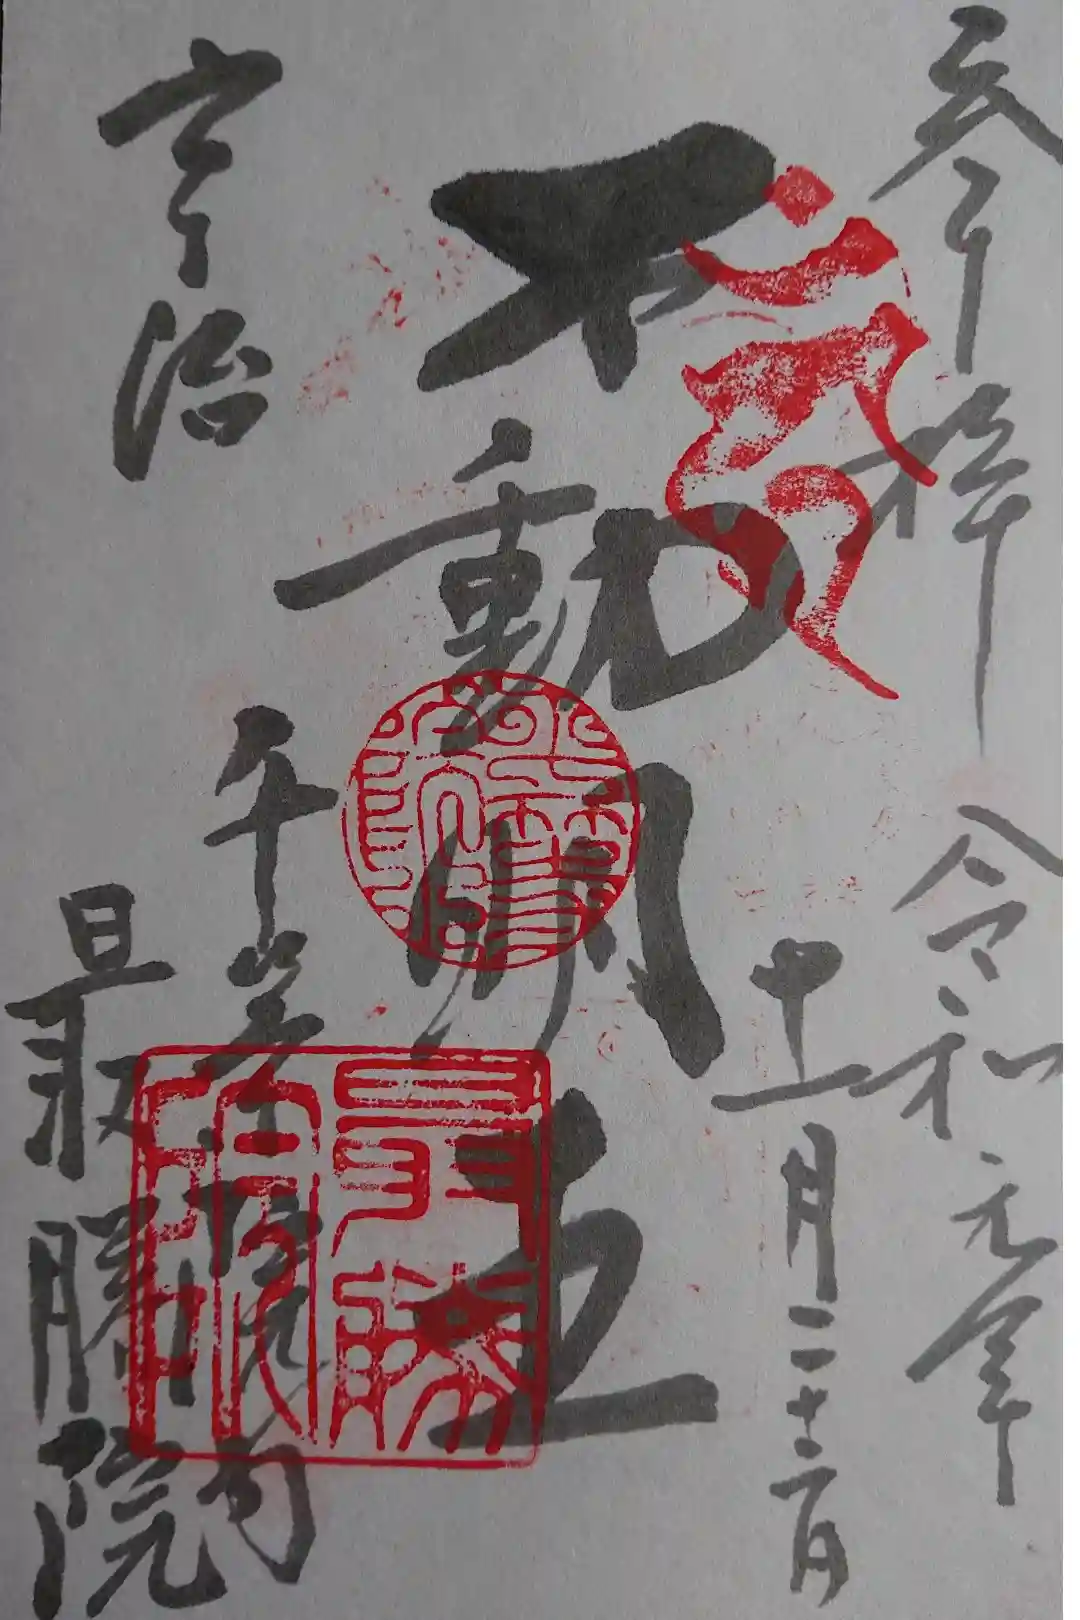 奉拝 令和元年
十一月二十三日
不動明王
宇治
平等院内
最勝院
最勝院印